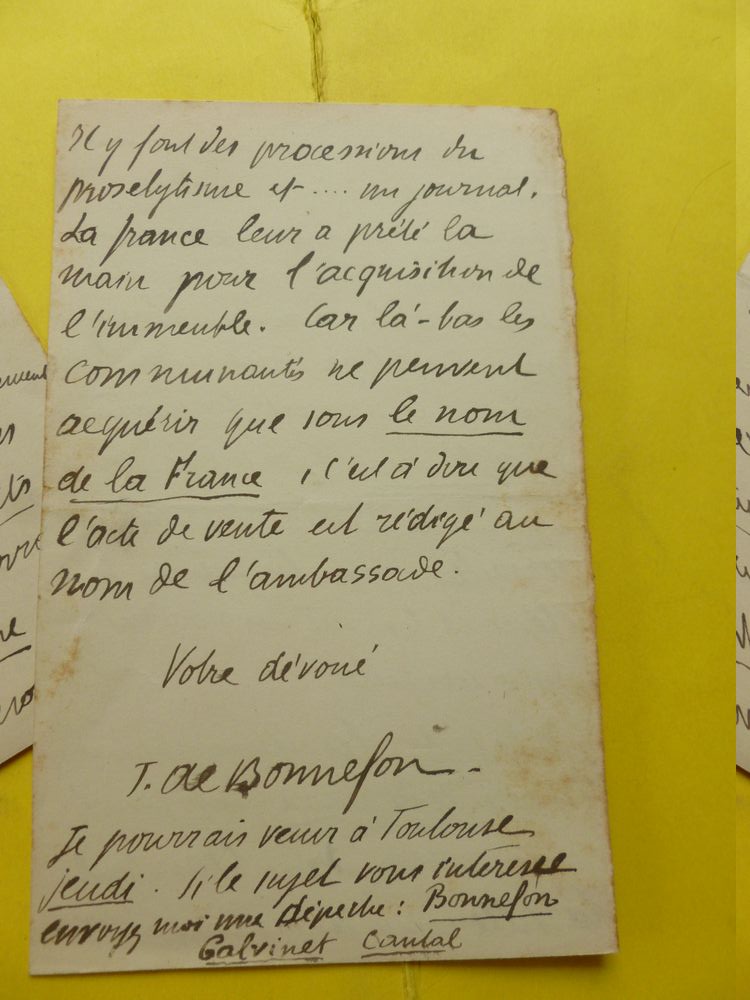 Il y font des processions du
proselytisme et .... un journal.
La france leur a prêté la
main pour l'acquisition de
l'immeuble. Car là-bas les
communautés ne peuvent
acquérir que sous le nom
de la France, c'est à dire que
l'acte de vente est rédigé au
nom de l'ambassade.
Votre dévoué
J. de Bonnefon.
Je pourrais venir à Toulouse
jeudi. Si le sujet vous intéresse
envoyez moi une dépeche: Bonnefon
Calvinet Cantal